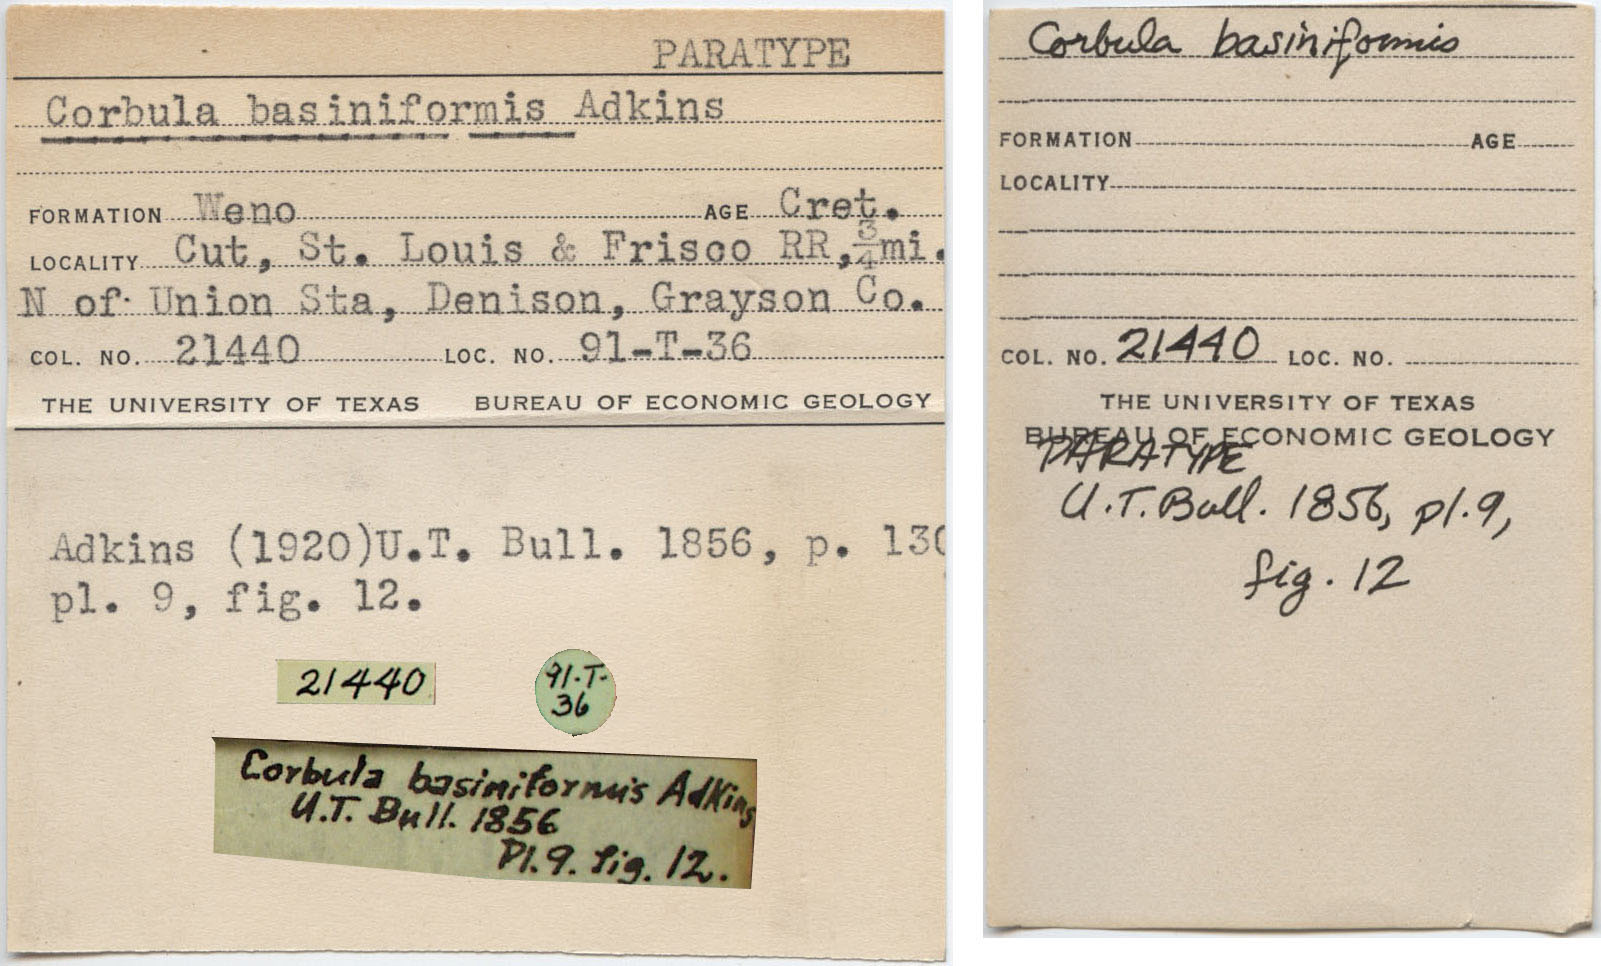 PARATYPE
Corbula basiniformis Adkins
FORMATION Weno AGE Cret.
LOCALITY Cut, St. Louis & Frisco RR, 3/4 mi.
N of Union Sta, Denison, Grayson Co.
COL. NO. 21440 LOC. NO. 91-T-36
THE UNIVERSITY OF TEXAS BUREAU OF ECONOMIC GEOLOGY
Adkins (1920)U.T. Bull. 1856, p. 130
pl. 9, fig. 12.
21440
91-T-
36
Corbula basiniformis Adkins
U.T. Bull. 1856
Pl. 9. fig. 12.
Corbula basiniformis
FORMATION AGE
LOCALITY
COL. NO. 21440 LOC. NO.
THE UNIVERSITY OF TEXAS
BUREAU OF ECONOMIC GEOLOGY
PARATYPE
U.T. Bull. 1856, pl. 9,
fig. 12